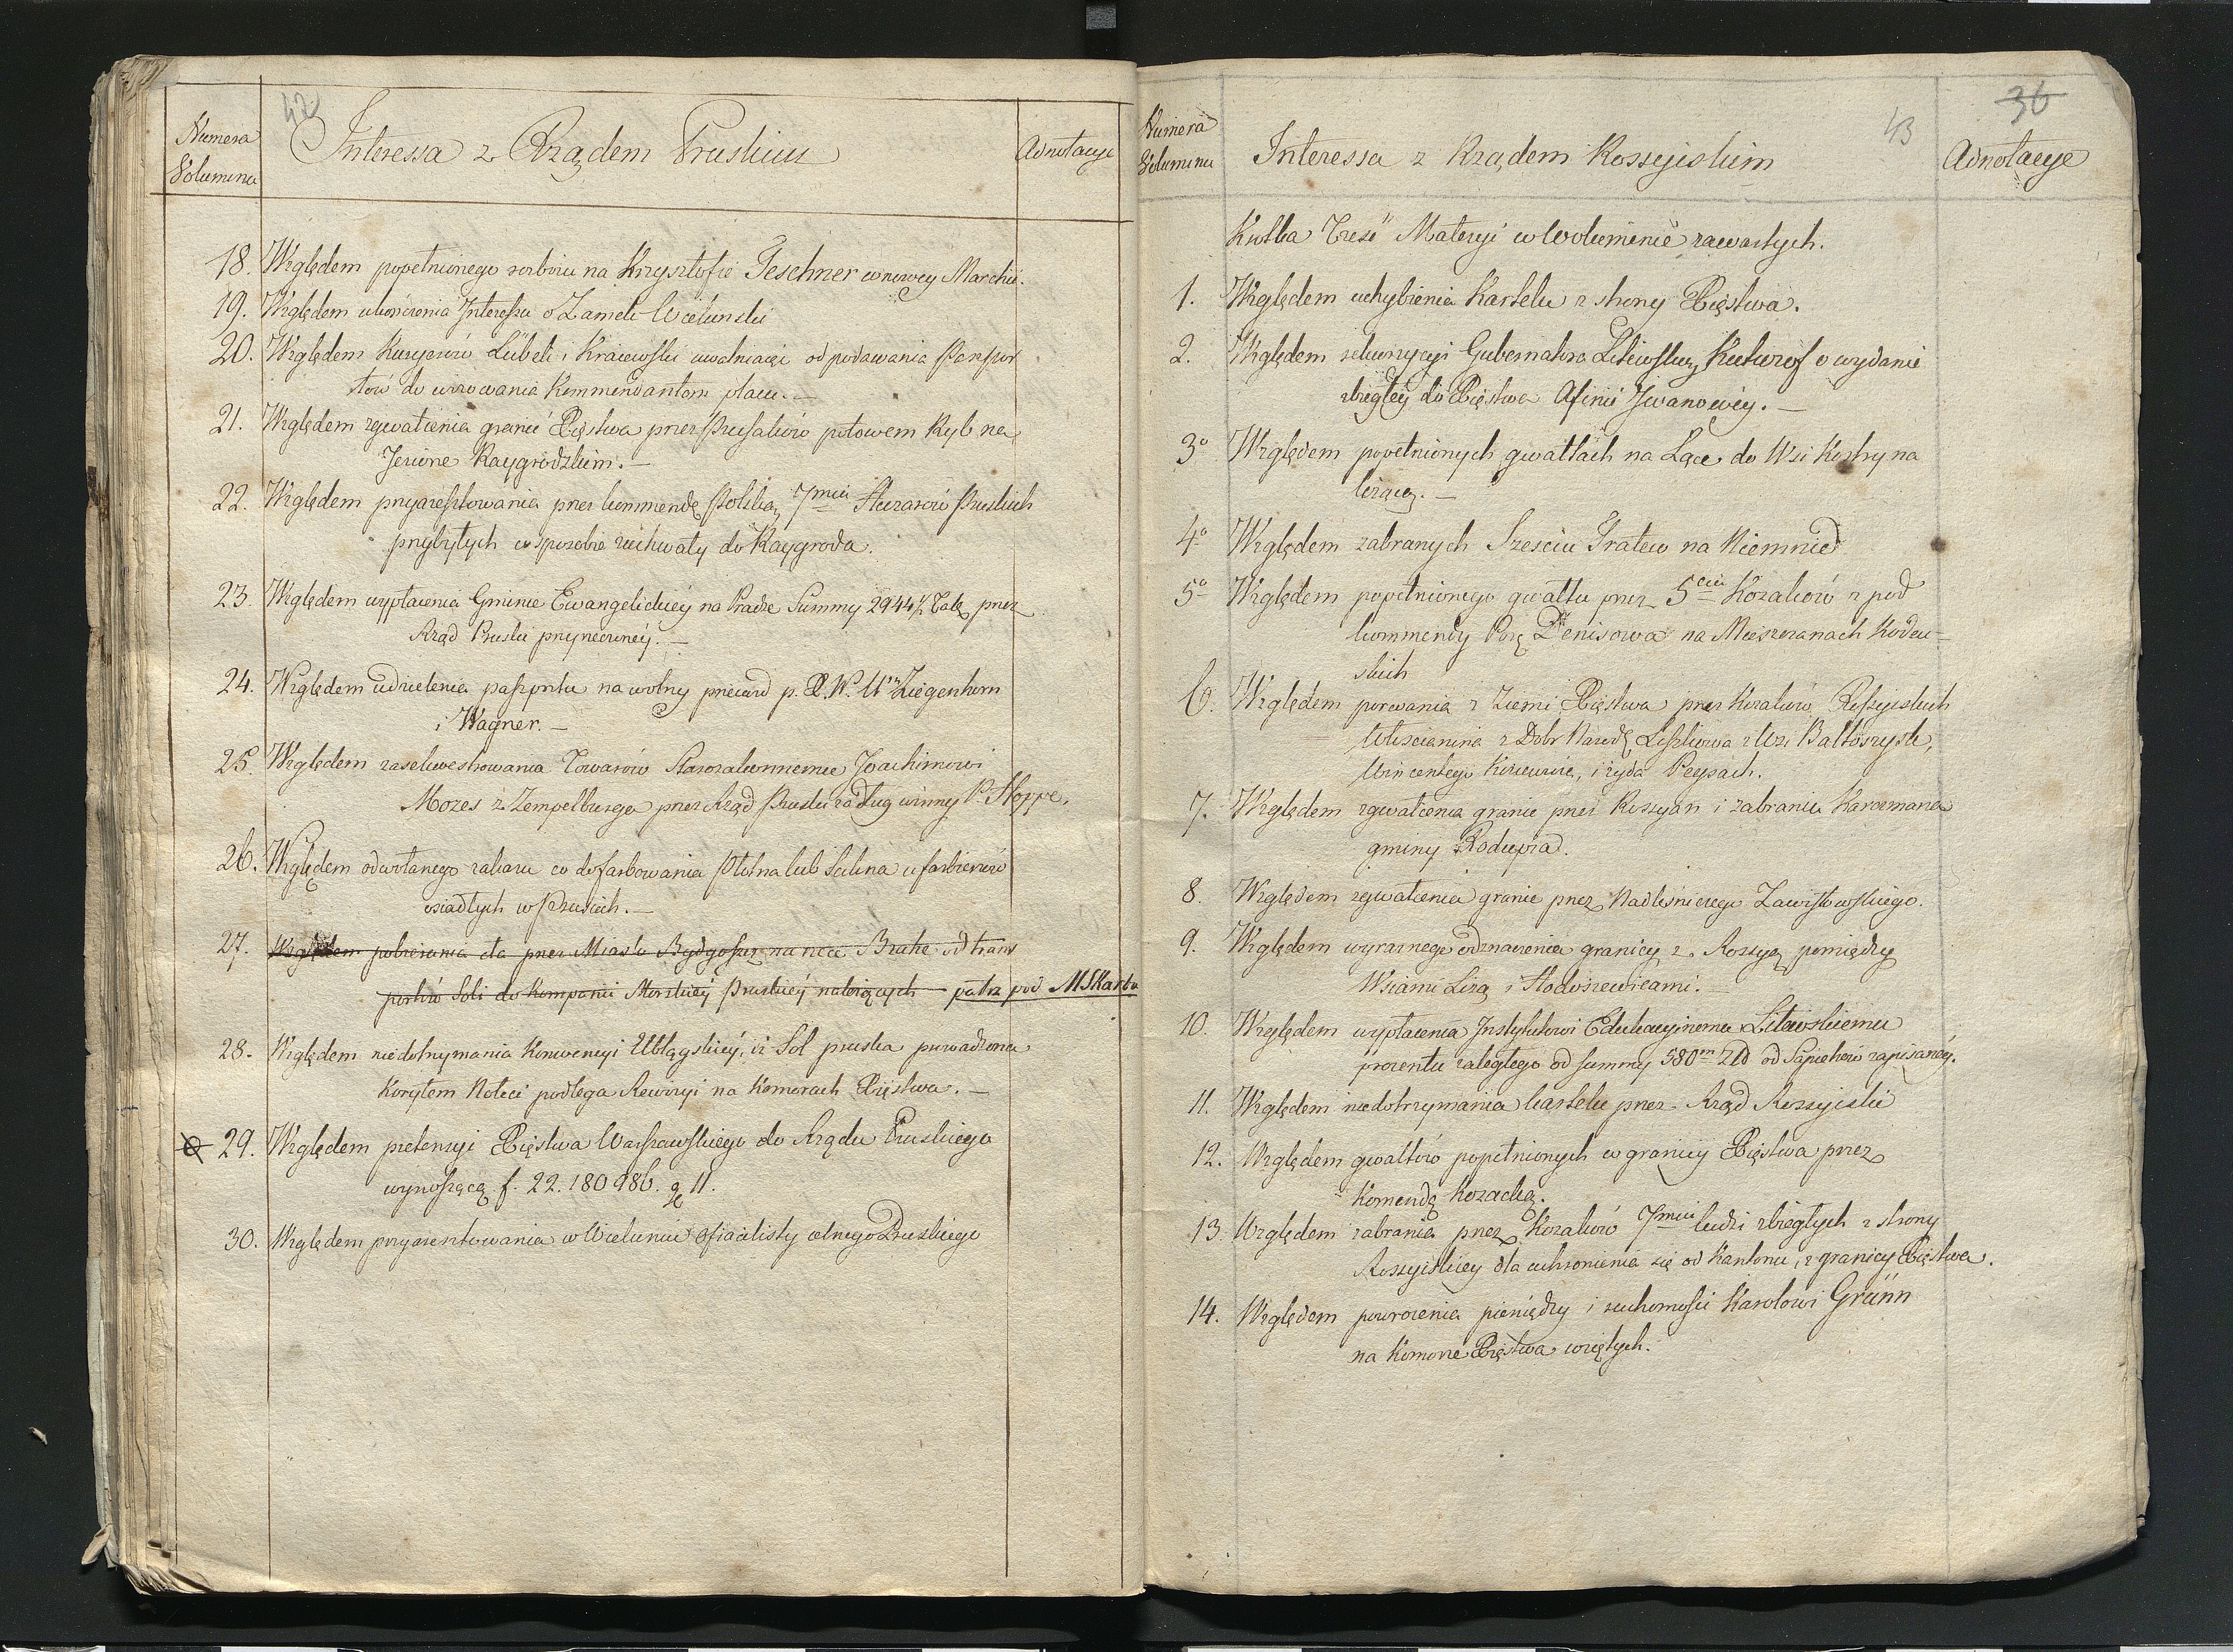 42
Numera
Volumina
Interessa z Rządem Pruskim
Adnotacye
18. Względem popełnionego rozboiu na Krzysztofie Teschner w nowey Marchii.
19. Względem ukończenia Interessu o Zamek Wieluński
20. Względem Kuryerów Lübek i Kraiewski uwalniaiąc od podawania Paszpor
tów do wizowania Kommendantom placu. —
21. Względem zgwałcenia granic Xięstwa przez Prusaków połowem Ryb na
Jeziorze Raygrodzkim. —
22. Względem przyaresztowania przez kommendę Polską 7miu Huzarów Pruskich
przybyłych w sposobie zuchwały do Raygroda.
23. Względem wypłacenia Gminie Ewangelickiey na Pradze Summy 2944½ Tal. przez
Rząd Pruski przyrzeczoney. —
24. Względem udzielenia paszportu na wolny przeiazd p. P. W. Ur. Ziegenhorn
i Wagner. —
25. Względem zasekwestrowania Towarów Starozakonnemu Joachimowi
Mozes z Zempelburga przez Rząd Pruski za dług winny P. Hoppe.
26. Względem odwołanego zakazu co do farbowania Płótna lub Sukna u farbierzów
osiadłych w Prusiech. —
27. Względem pobierania cła przez Miasto Bydgoszcz na rzece Brahe od trans
portów Soli do Kompanii Morskiey Pruskiey należących — patrz pod MSkarbu
28. Względem niedotrzymania Konwencyi Elblągskiey, iż Sól pruska prowadzona
Korytem Noteci podlega Rewizyi na Komorach Xięstwa. —
29. Względem pretensyi Xięstwa Warszawskiego do Rządu Pruskiego
wynoszącą f. 22.180986. g 11.
30. Względem przyaresztowania w Wieluniu Oficialisty celnego Pruskiego
43
36
Numera
Volumina
Interessa z Rządem Rossyiskim
Adnotacye
Krótka Treść Materyi w Woluminie zawartych.
1. Względem uchybienia Kartelu z strony Xięstwa.
2. Względem rekwizycyi Gubernatora Litewskiego Kutuzof o wydanie
zbiegłey do Xięstwa Afinii Jwanowey. —
3o Względem popełnionych gwałtach na Łące do Wsi Kostry na
leżącey. —
4o Względem zabranych Sześciu Tratew na Niemnie
5o Względem popełnionego gwałtu przez 5ciu Kozaków z pod
kommendy Denisowa na Mieszczanach Kodeń-
skich
6. Względem porwania z Ziemi Xięstwa przez Kozaków Rossyiskich
Włościanina z Dobr Narod. Liszkowa z Wsi Baltoszyszk,
Wincentego i żyda Peysach.
7. Względem zgwałcenia granic przez Rossyan i zabrania Karczmarza
gminy Rodupia.
8. Względem zgwałcenia granic przez Nadleśniczego Zawistowskiego.
9. Względem wyraznego odznaczenia granicy z Rossyą pomiędzy
Wsiami Lizą i Hodyszewicami.
10. Względem wypłacenia Jnstytutowi Edukacyjnemu Litewskiemu
procentu zaległego od summy 580m Zło od Sapiehów zapisaney.
11. Względem niedotrzymania kartelu przez Rząd Rossyiski
12. Względem gwałtów popełnionych w granicy Xięstwa przez
Komendę Kozacką.
13. Względem zabrania przez Kozaków 7miu ludzi zbiegłych z strony
Rossyiskiey dla uchronienia się od Kantonu, z granicy Xięstwa.
14. Względem powrocenia pieniędzy i ruchomości Karolowi Grünn
na Komorze Xięstwa wziętych.